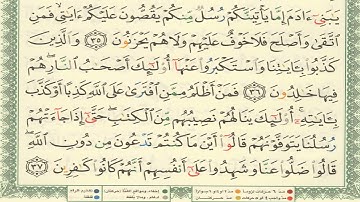 يَـٰبَنِىٓ ءَادَمَ إِمَّا يَأْتِيَنَّكُمْ رُسُلٌ مِّنكُمْ يَقُصُّونَ عَلَيْكُمْ ءَايَـٰتِى فَمَنِ
ٱتَّقَىٰ وَأَصْلَحَ فَلَا خَوْفٌ عَلَيْهِمْ وَلَا هُمْ يَحْزَنُونَ ٣٥ وَٱلَّذِينَ
كَذَّبُوا۟ بِـَٔايَـٰتِنَا وَٱسْتَكْبَرُوا۟ عَنْهَآ أُو۟لَـٰٓئِكَ أَصْحَـٰبُ ٱلنَّارِ هُمْ
فِيهَا خَـٰلِدُونَ ٣٦ فَمَنْ أَظْلَمُ مِمَّنِ ٱفْتَرَىٰ عَلَى ٱللَّهِ كَذِبًا أَوْ كَذَّبَ
بِـَٔايَـٰتِهِۦٓ أُو۟لَـٰٓئِكَ يَنَالُهُمْ نَصِيبُهُم مِّنَ ٱلْكِتَـٰبِ حَتَّىٰٓ إِذَا جَآءَتْهُمْ
رُسُلُنَا يَتَوَفَّوْنَهُمْ قَالُوٓا۟ أَيْنَ مَا كُنتُمْ تَدْعُونَ مِن دُونِ ٱللَّهِ
قَالُوا۟ ضَلُّوا۟ عَنَّا وَشَهِدُوا۟ عَلَىٰٓ أَنفُسِهِمْ أَنَّهُمْ كَانُوا۟ كَـٰفِرِينَ ٣٧